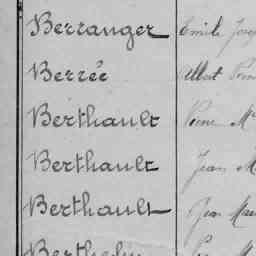 Berranger Emile Josep
Berrée Albert
Berthault Pierre M
Berthault Jean M
Berthault Jean Marie